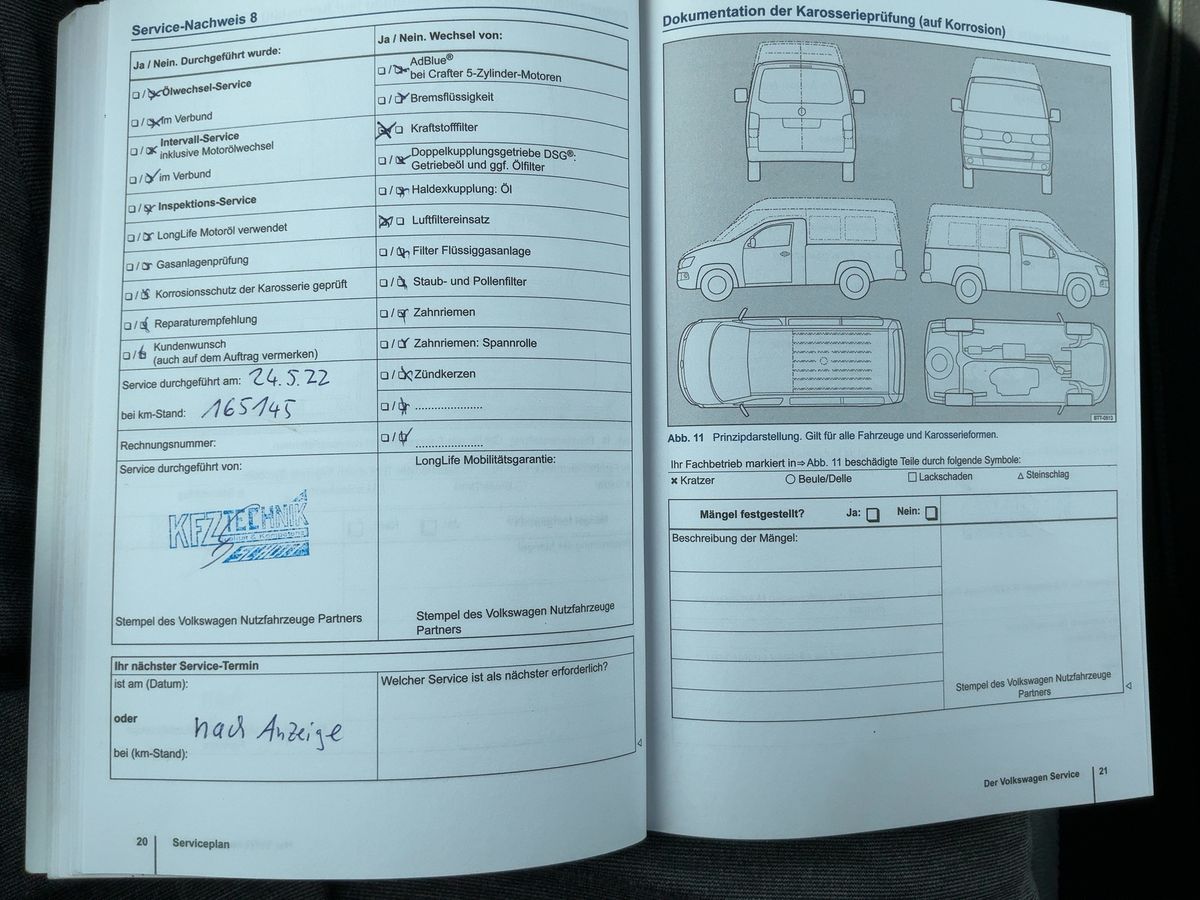 Service-Nachweis 8
Ja / Nein. Durchgeführt wurde:
Ölwechsel-Service
im Verbund
Intervall-Service
inklusive Motorölwechsel
im Verbund
Inspektions-Service
LongLife Motoröl verwendet
Gasanlagenprüfung
Korrosionsschutz der Karosserie geprüft
Reparaturempfehlung
Kundenwunsch
(auch auf dem Auftrag vermerken)
Service durchgeführt am: 24.5.22
bei km-Stand: 165145
Rechnungsnummer:
Service durchgeführt von:
KFZTECHNIK
Stempel des Volkswagen Nutzfahrzeuge Partners
Ja / Nein. Wechsel von:
AdBlue®
bei Crafter 5-Zylinder-Motoren
Bremsflüssigkeit
Kraftstofffilter
Doppelkupplungsgetriebe DSG®:
Getriebeöl und ggf. Ölfilter
Haldexkupplung: Öl
Luftfiltereinsatz
Filter Flüssiggasanlage
Staub- und Pollenfilter
Zahnriemen
Zahnriemen: Spannrolle
Zündkerzen
LongLife Mobilitätsgarantie:
Stempel des Volkswagen Nutzfahrzeuge
Partners
Ihr nächster Service-Termin
ist am (Datum):
oder
nach Anzeige
bei (km-Stand):
Welcher Service ist als nächster erforderlich?
20 Serviceplan
Dokumentation der Karosserieprüfung (auf Korrosion)
Abb. 11 Prinzipdarstellung. Gilt für alle Fahrzeuge und Karosserieformen.
Ihr Fachbetrieb markiert in⇒Abb. 11 beschädigte Teile durch folgende Symbole:
✖ Kratzer ○ Beule/Delle □ Lackschaden △ Steinschlag
Mängel festgestellt? Ja: Nein:
Beschreibung der Mängel:
Stempel des Volkswagen Nutzfahrzeuge
Partners
Der Volkswagen Service 21